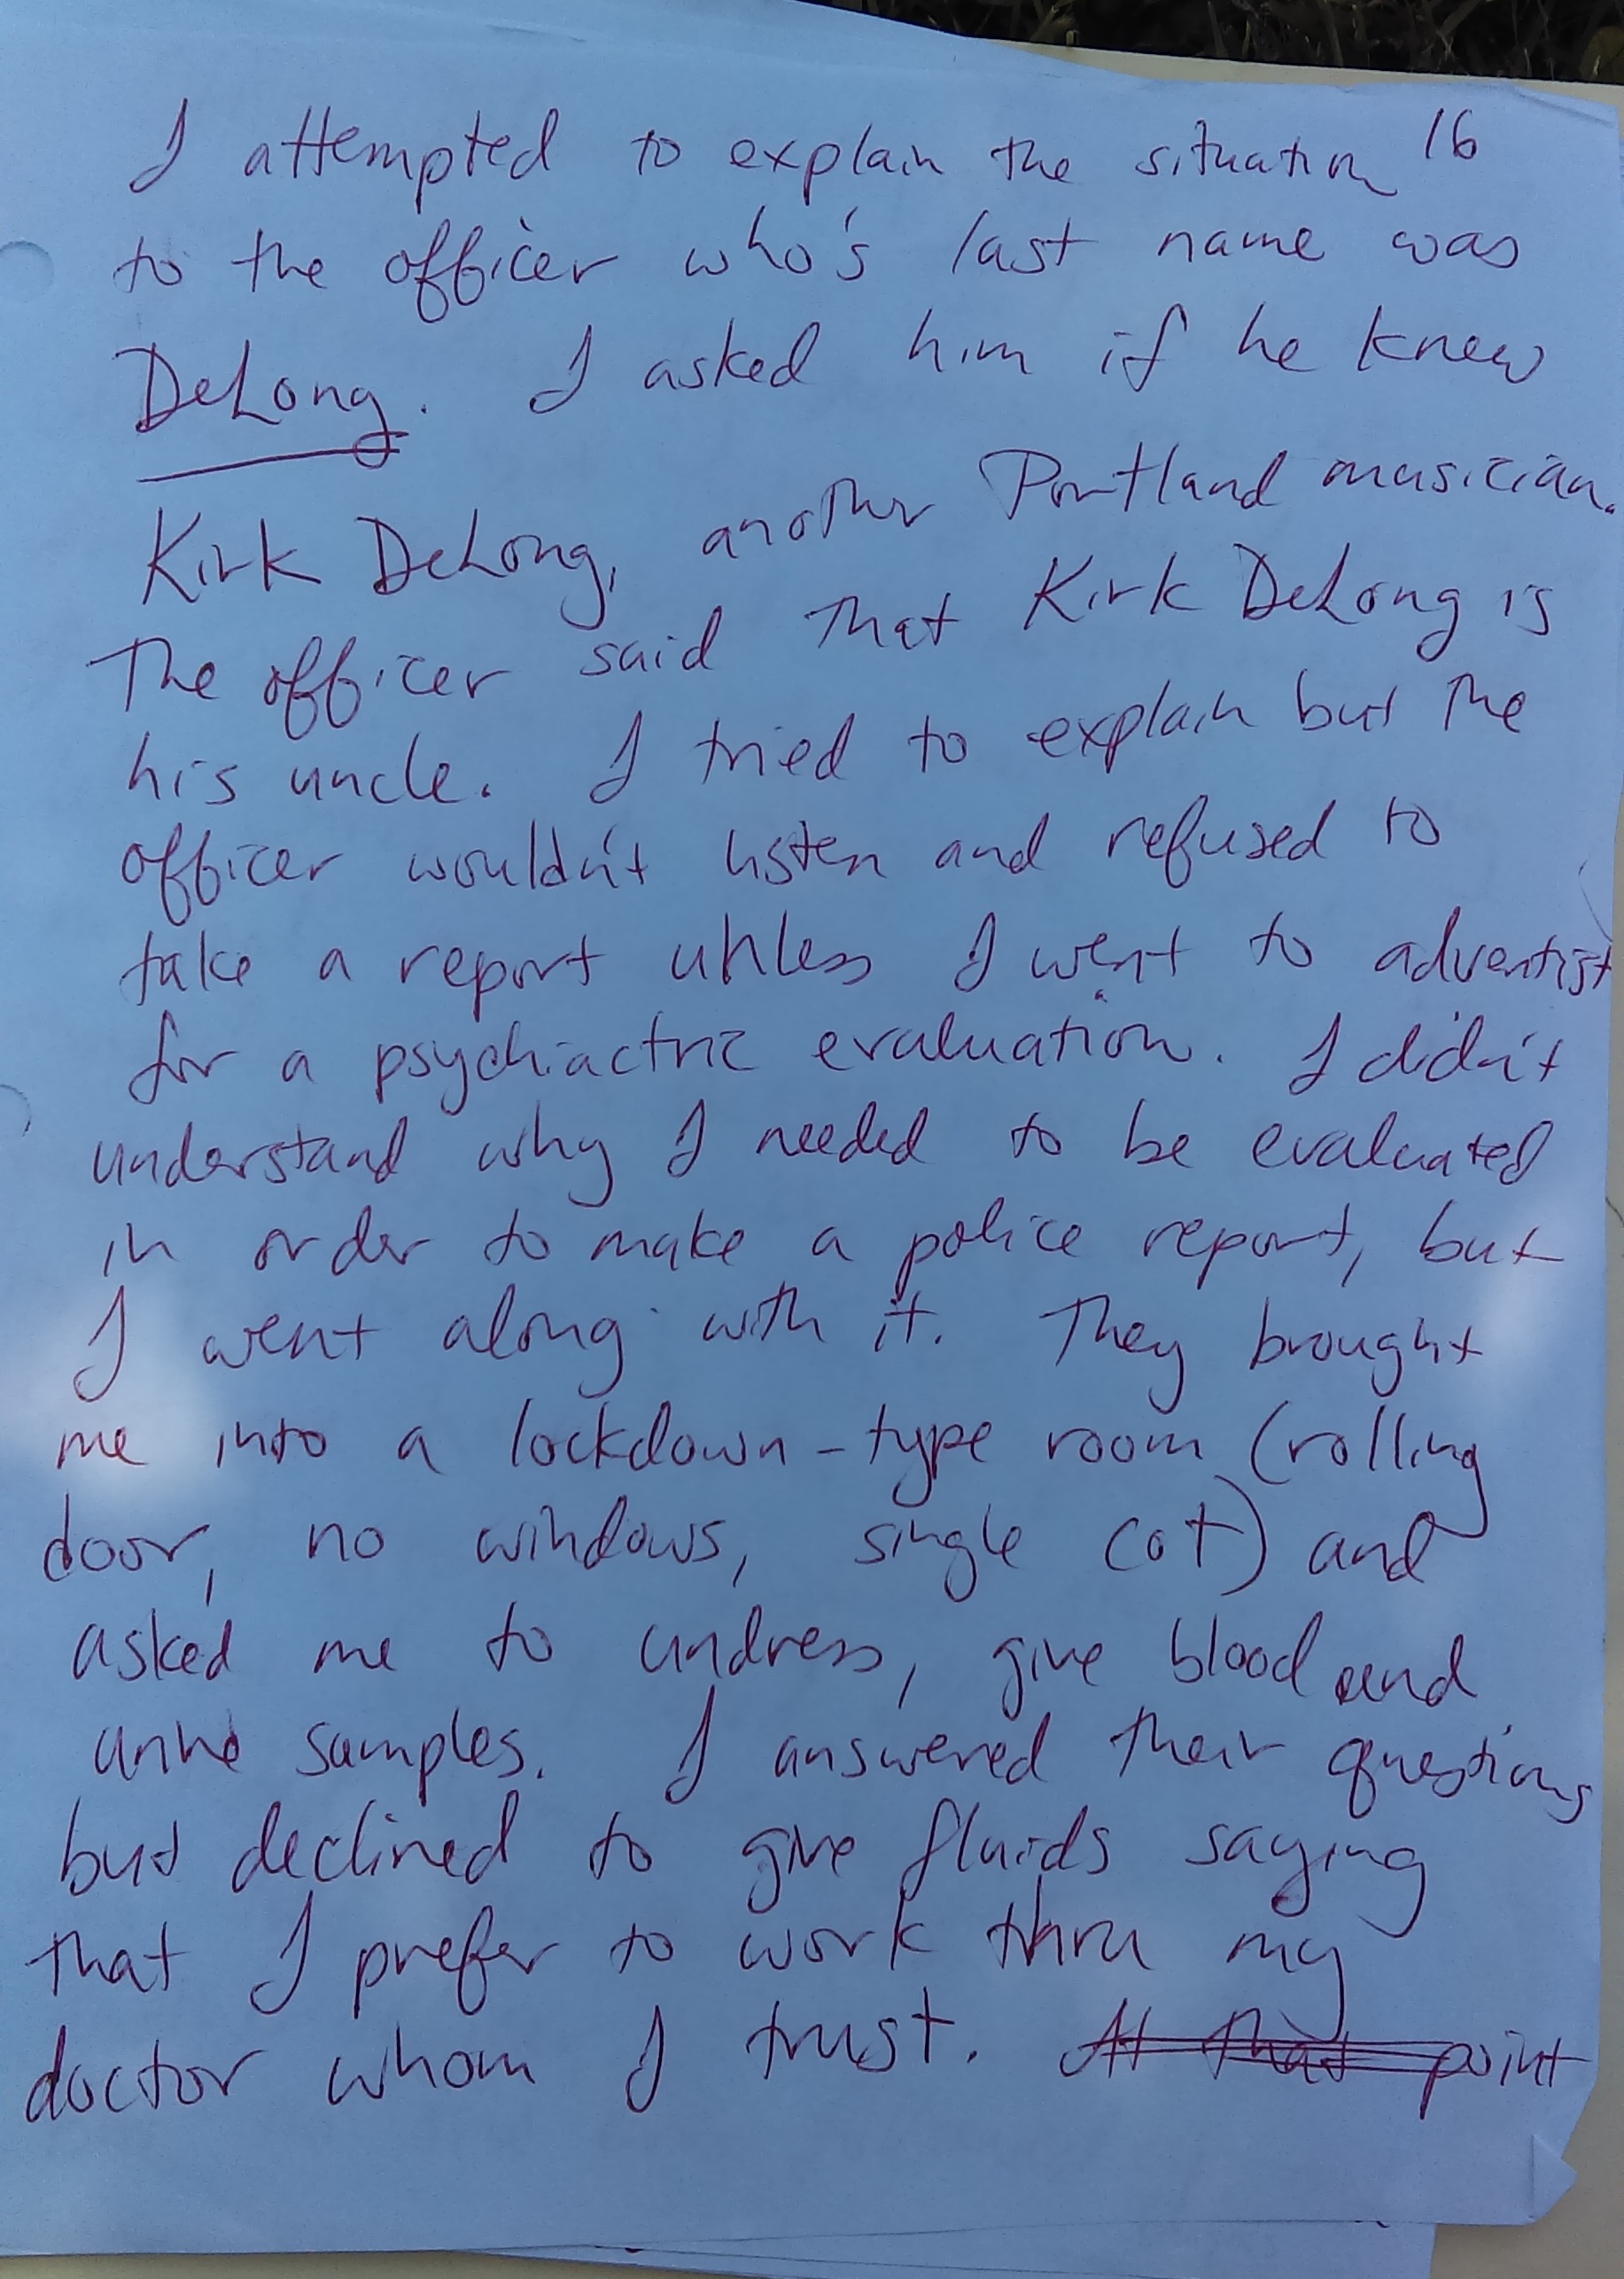 I attempted to explain the situation 16
to the officer who's last name was
DeLong. I asked him if he knew
Kirk DeLong, another Portland musician.
The officer said that Kirk DeLong is
his uncle. I tried to explain but the
officer wouldn't listen and refused to
take a report unless I went to adventist
for a psychiactric evaluation. I didn't
understand why I needed to be evaluated
in order to make a police report, but
I went along with it. They brought
me into a lockdown-type room (rolling
door, no windows, single cot) and
asked me to undress, give blood and
urine samples. I answered their questions
but declined to give fluids saying
that I prefer to work thru my
doctor whom I trust. At that point